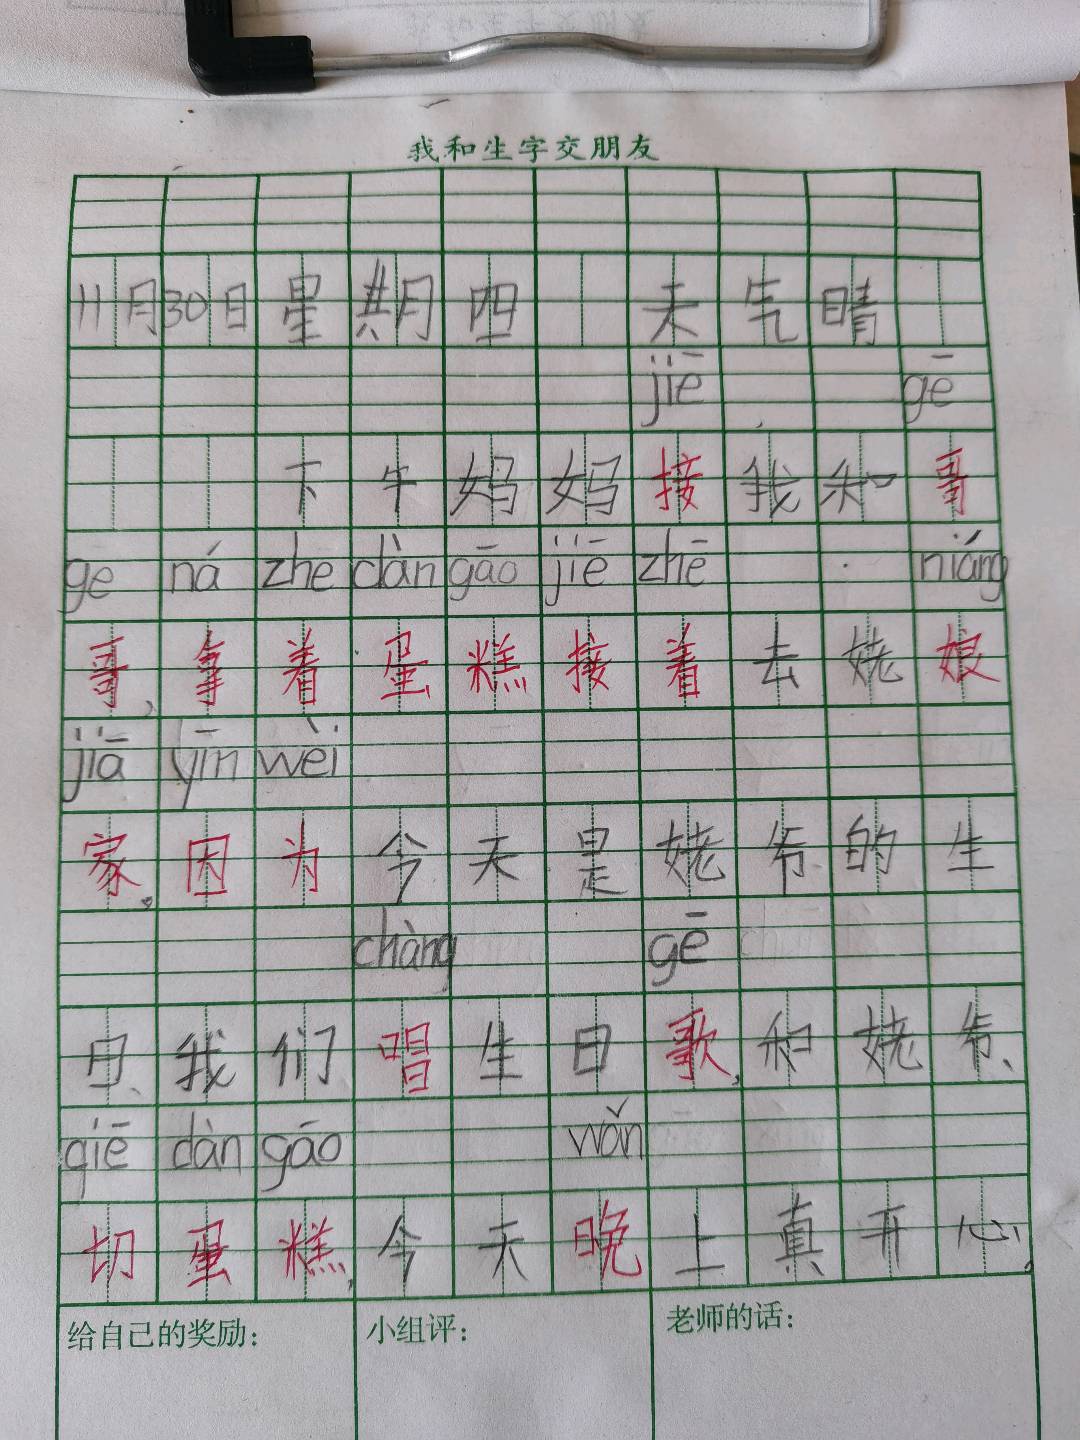 我和生字交朋友
11月30日星期四 天气晴
jiē gē
下午妈妈接我和哥
ge ná zhe dàn gāo jiē zhē niáng
哥,拿着蛋糕接着去姥娘
jiā yīn wèi
家,因为今天是姥爷的生
chàng gē
日、我们唱生日歌,和姥爷、
qiē dàn gāo wǎn
切蛋糕,今天晚上真开心,
给自己的奖励:
小组评:
老师的话: